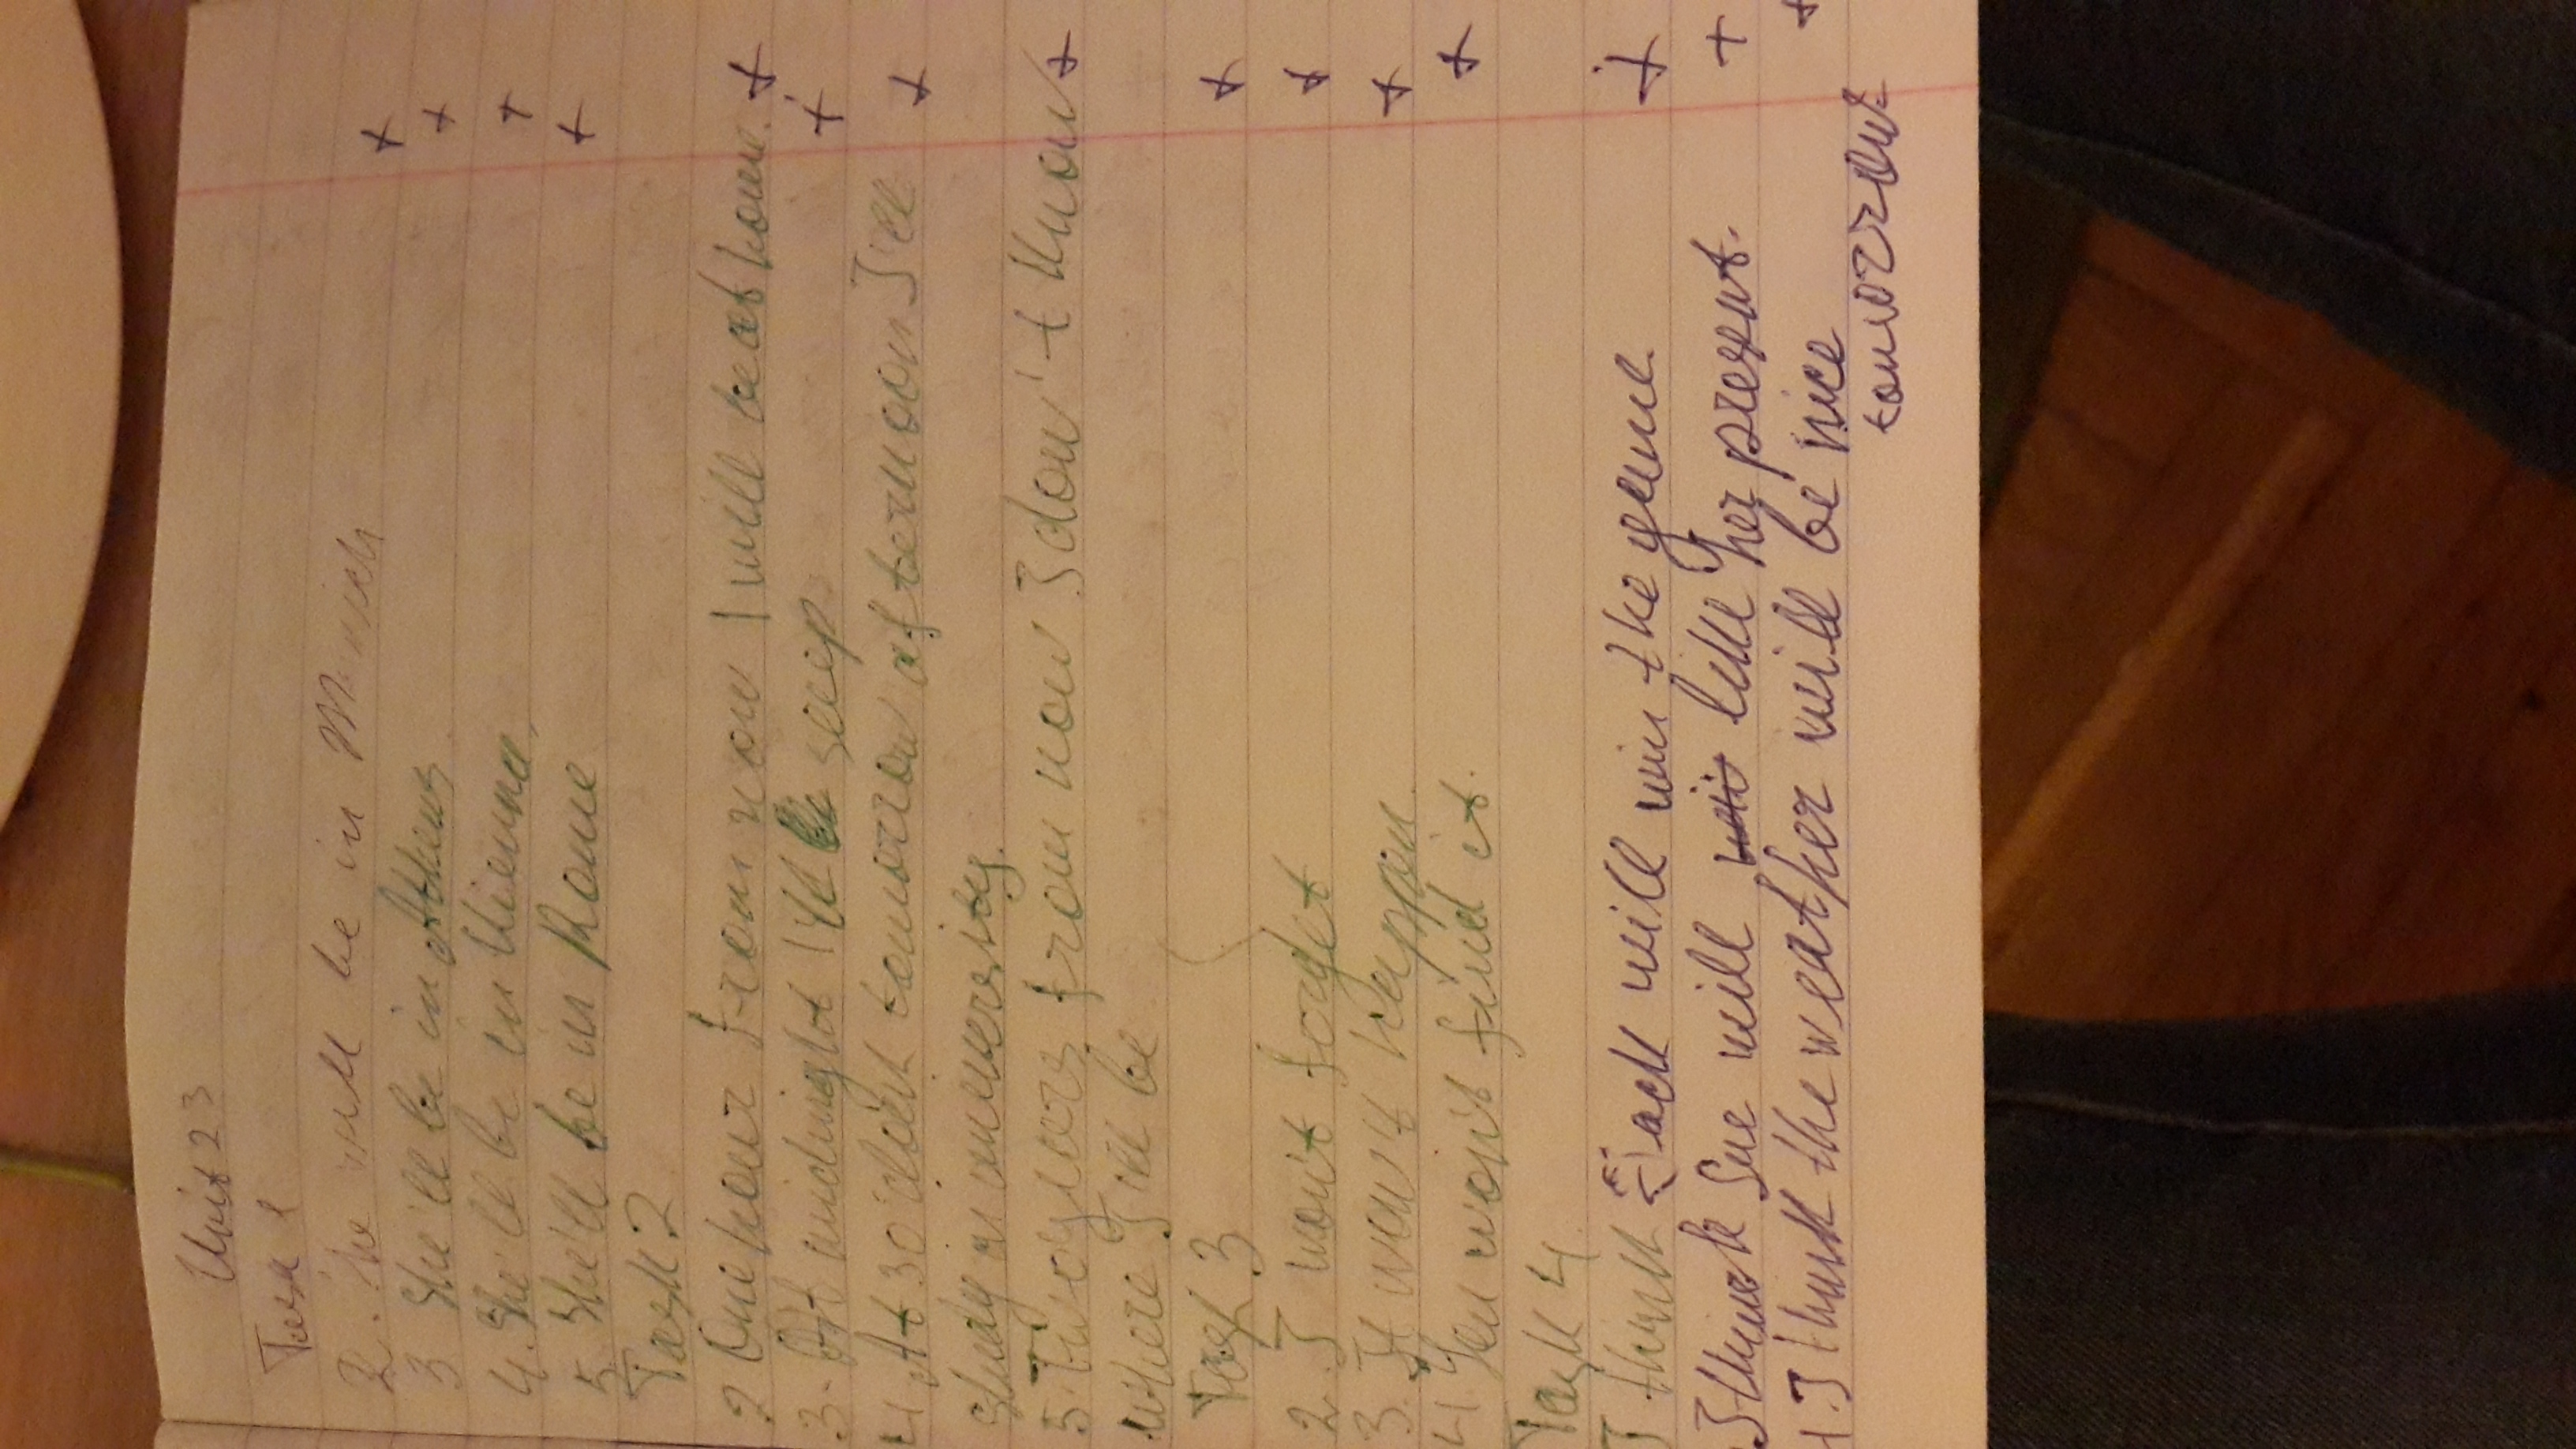 Unit 23
Task 1
2. he will be in Munich +
3 She'll be in Athens +
4. She'll be in Vienna, +
5 She'll be in Rome +
Task 2
2 One hour from now I will be at home. +
3. At midnight I'll be sleep. +
4 At 3 o'clock tomorrow afternoon I'll +
study an university.
5. Two years from now I don't know +
where I'll be
Task 3 +
2. I won't forget +
3. It won't happen +
4 You won't find it. +
Task 4.
I think Jack will win the game +
I think Sue will like her present. +
4. I think the weather will be nice +
tomorrow